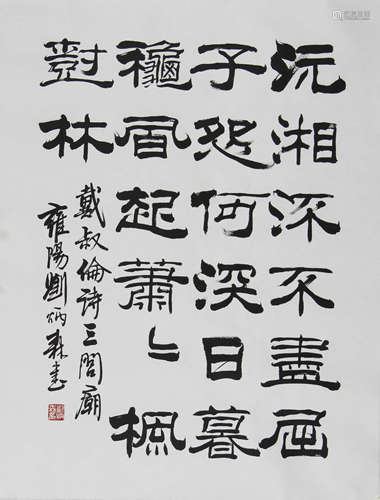 沅湘流不盡屈
子怨何深日暮
龝風起蕭〻楓
尌林
戴叔倫詩三閭廟
雍陽劉炳森書